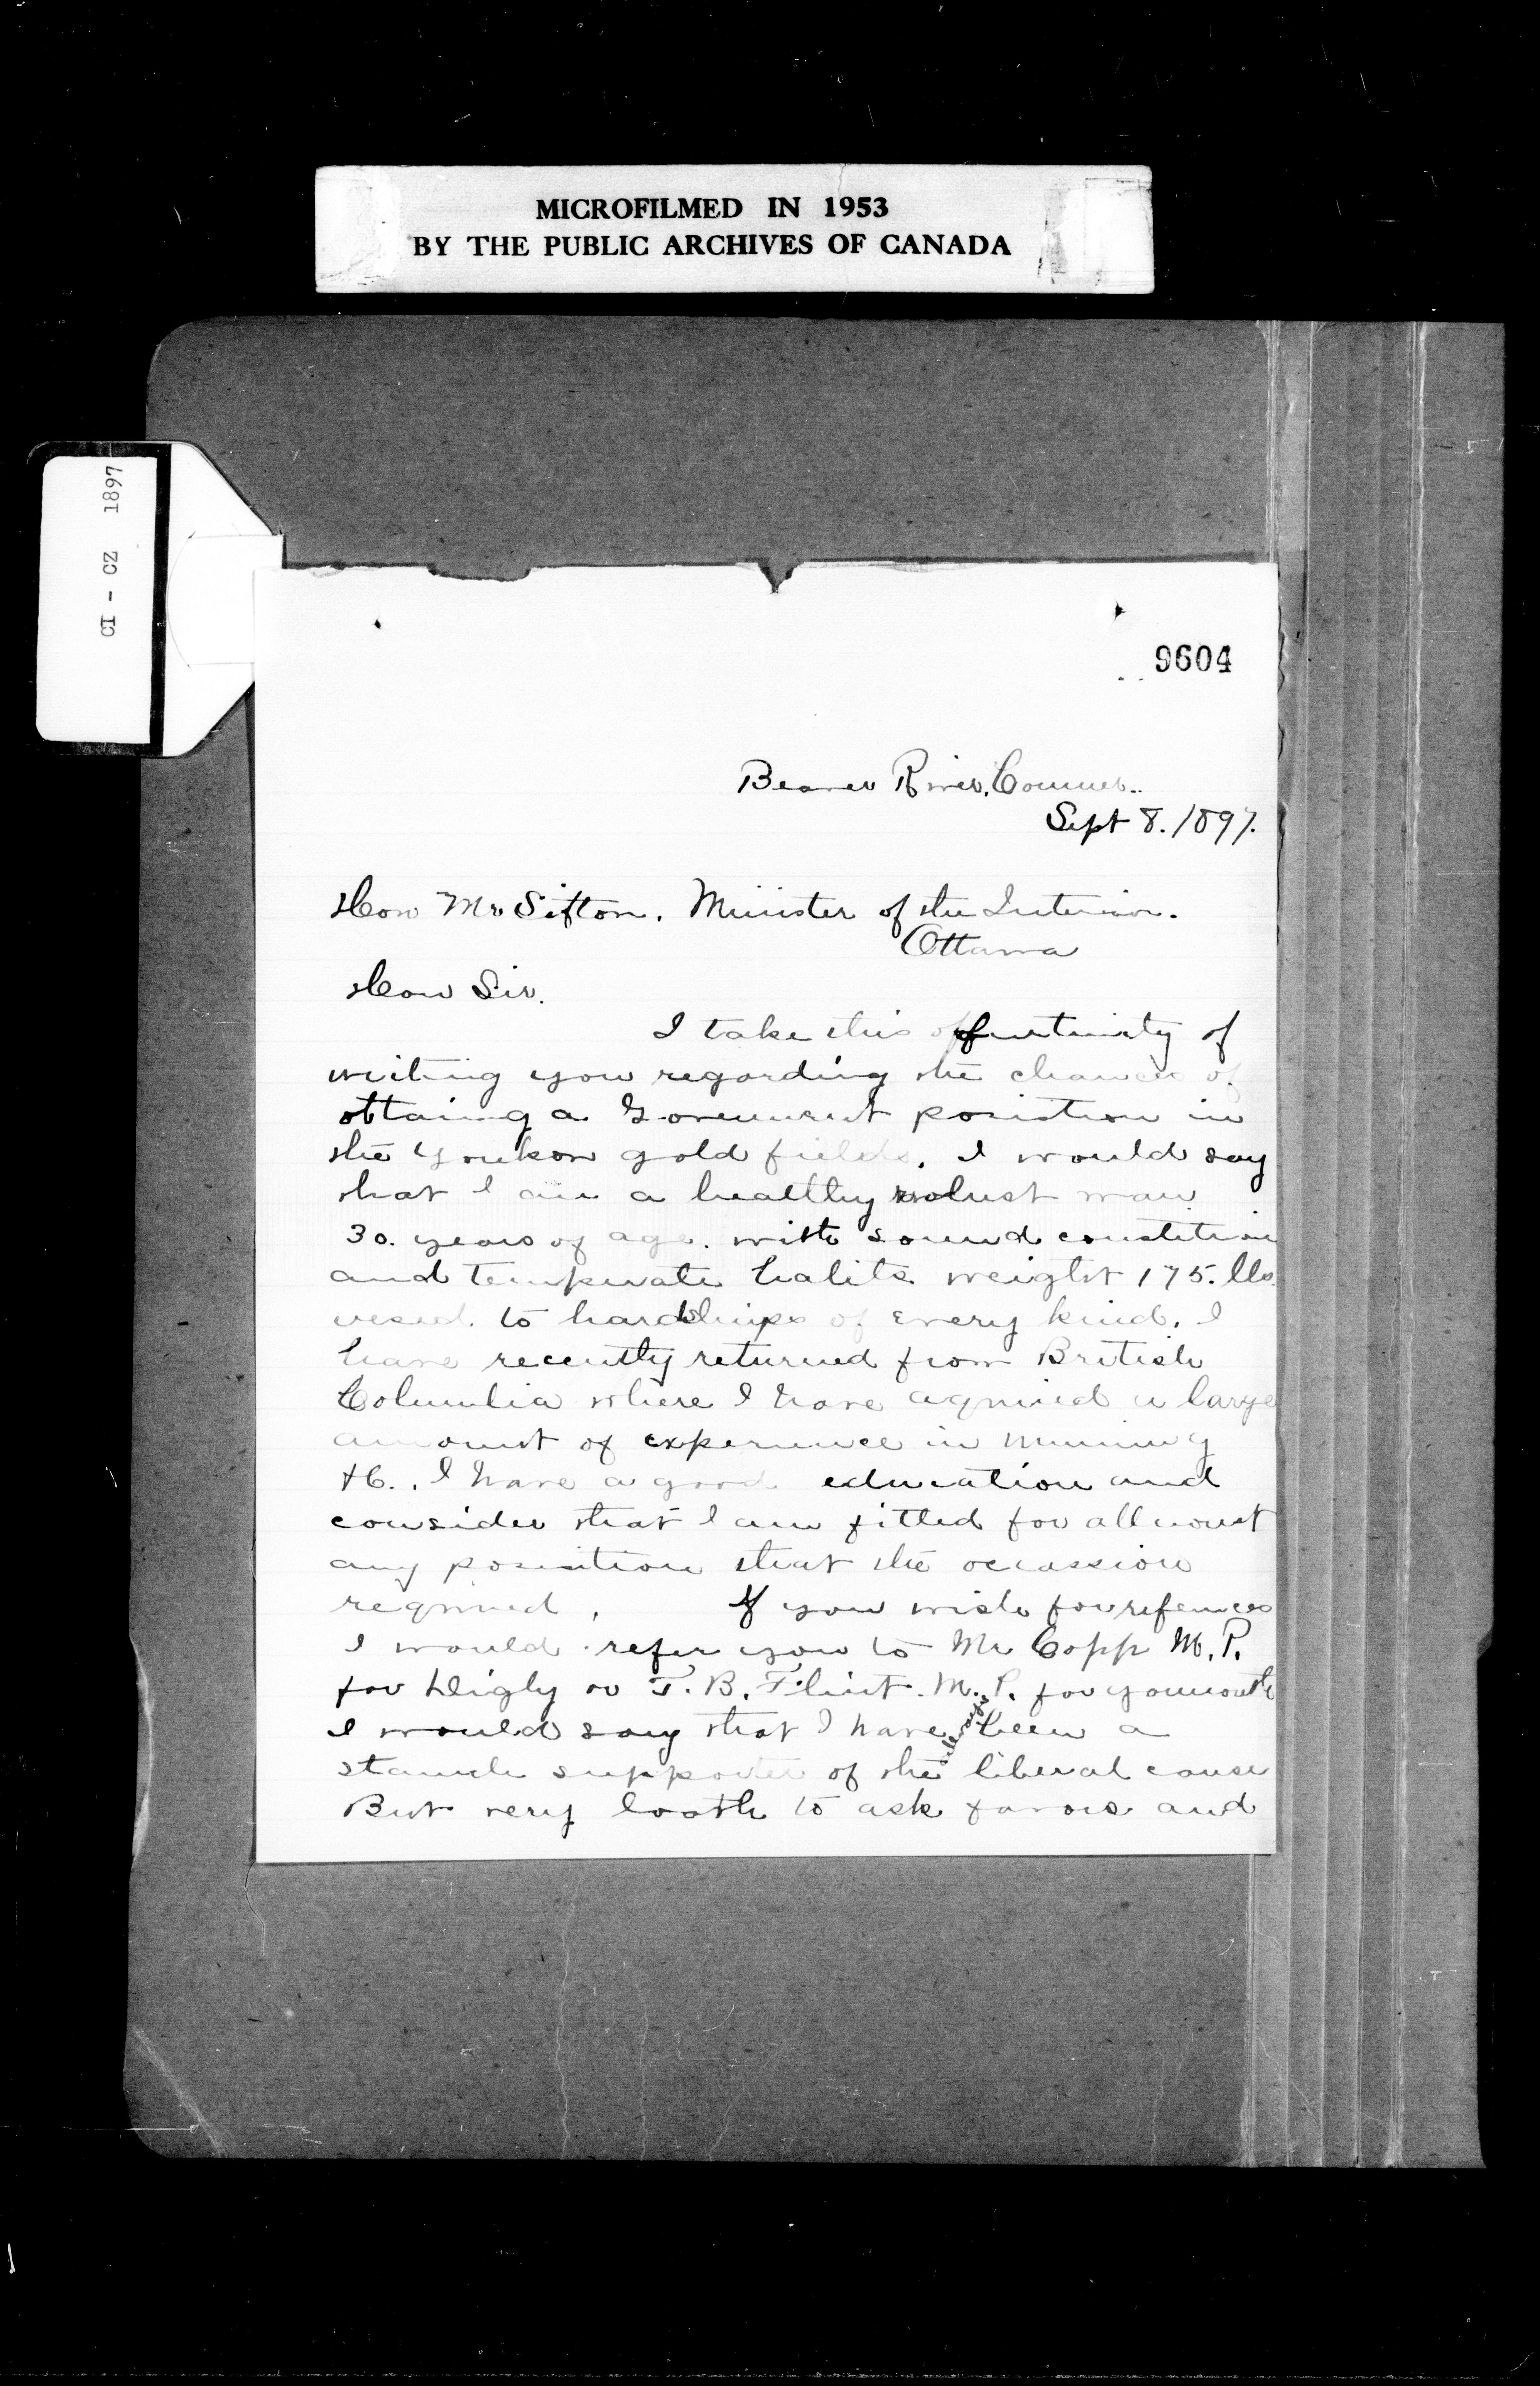 MICROFILMED IN 1953
BY THE PUBLIC ARCHIVES OF CANADA
CI - CZ 1897
9604
Beaver River, Corner..
Sept 8. 1897.
Hon Mr Sifton. Minister of the Interior.
Ottawa
Hon Sir.
I take this opportunity of
writing you regarding the chances of
obtaing a Government posistion in
the Youkon gold fields. I would say
that I am a healthy robust man
30. years of age. with sound constitution
and temperate habits weight 175. lbs.
used. to hardships of every kind. I
have recently returned from British
Columbia where I have aquired a large
amount of experience in mining
&c.. I have a good education and
consider that I am fitted for allmost
any position that the occassion
required. If you wish for refences
I would refer you to Mr Copp M.P.
for Digby or T.B. Flint. M.P. for Yarmouth
I would say that I have always been a
staunch supporter of the liberal cause
But very loath to ask favors and